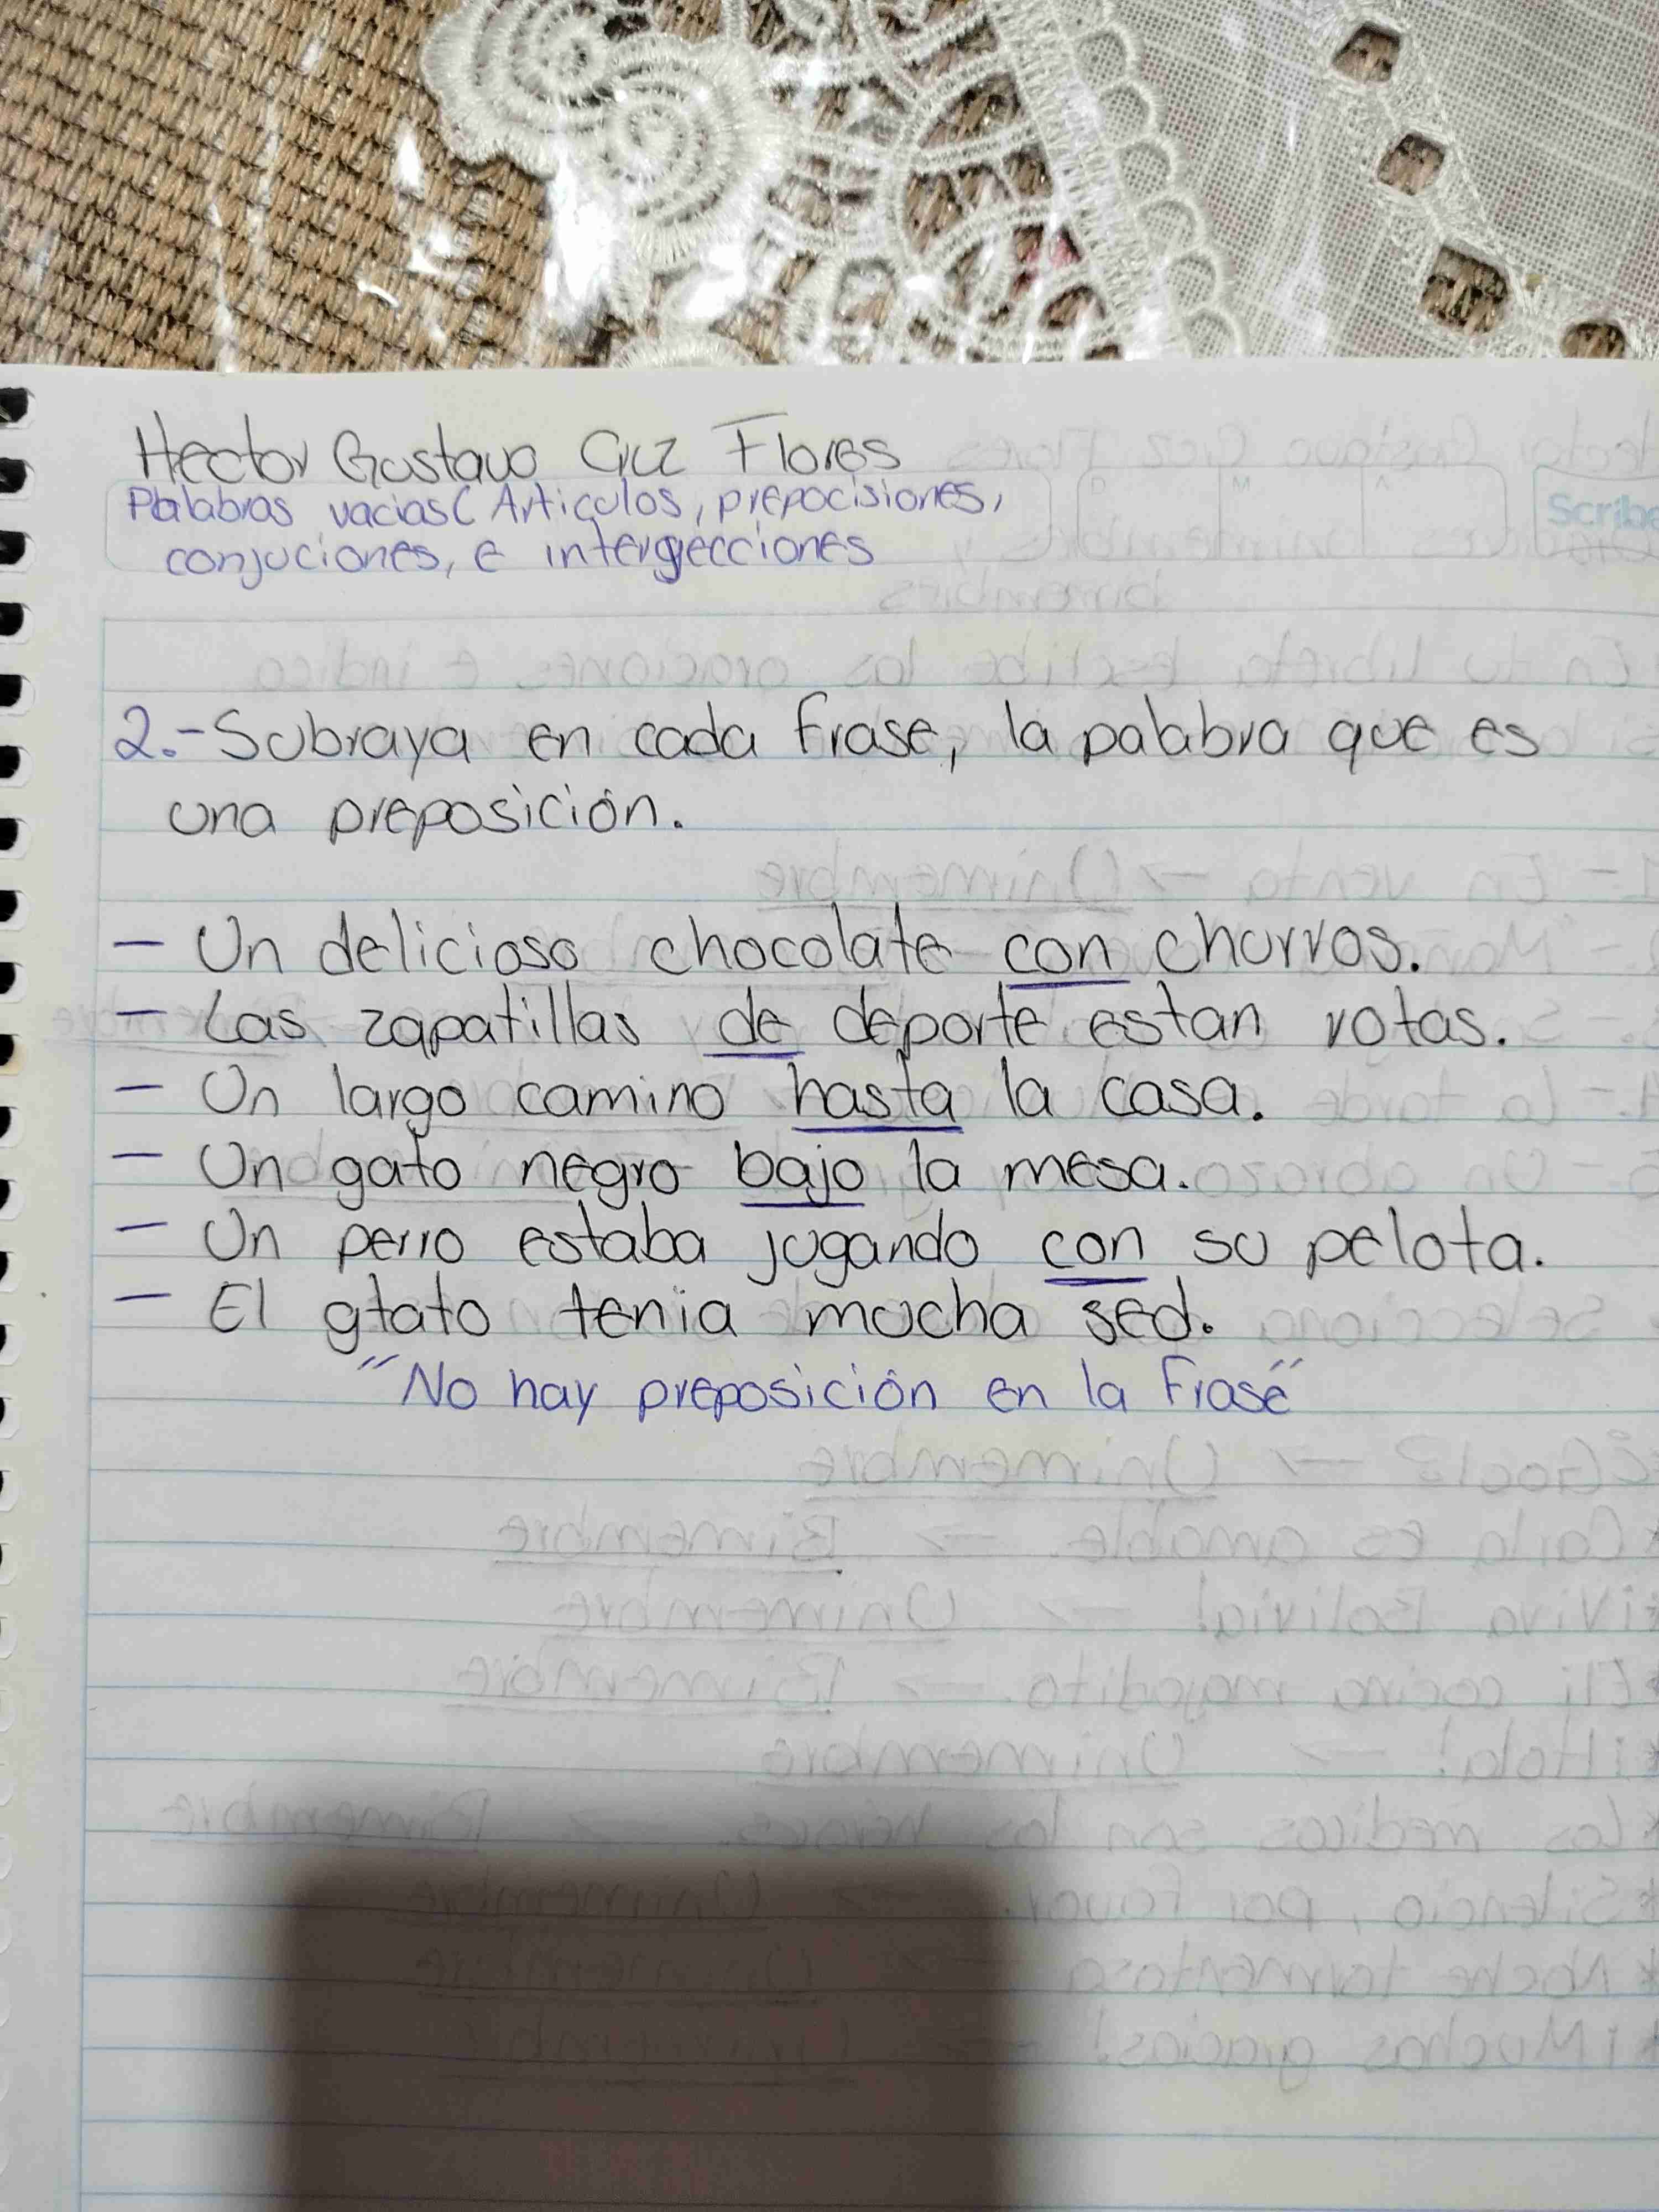 Hector Gustavo Cruz Flores
Palabras vacias( Articulos, prepocisiones,
conjuciones, e intergecciones
Scribe
2.- Subraya en cada frase, la palabra que es
una preposición.
- Un delicioso chocolate con churros.
- Las zapatillas de deporte estan rotas.
- Un largo camino hasta la casa.
- Un gato negro bajo la mesa.
- Un perro estaba jugando con su pelota.
- El gtato tenia mucha sed.
"No hay preposición en la frase"